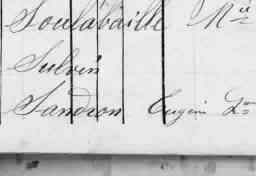 Soulabaille Mie
Sulvin
Sandron Eugène